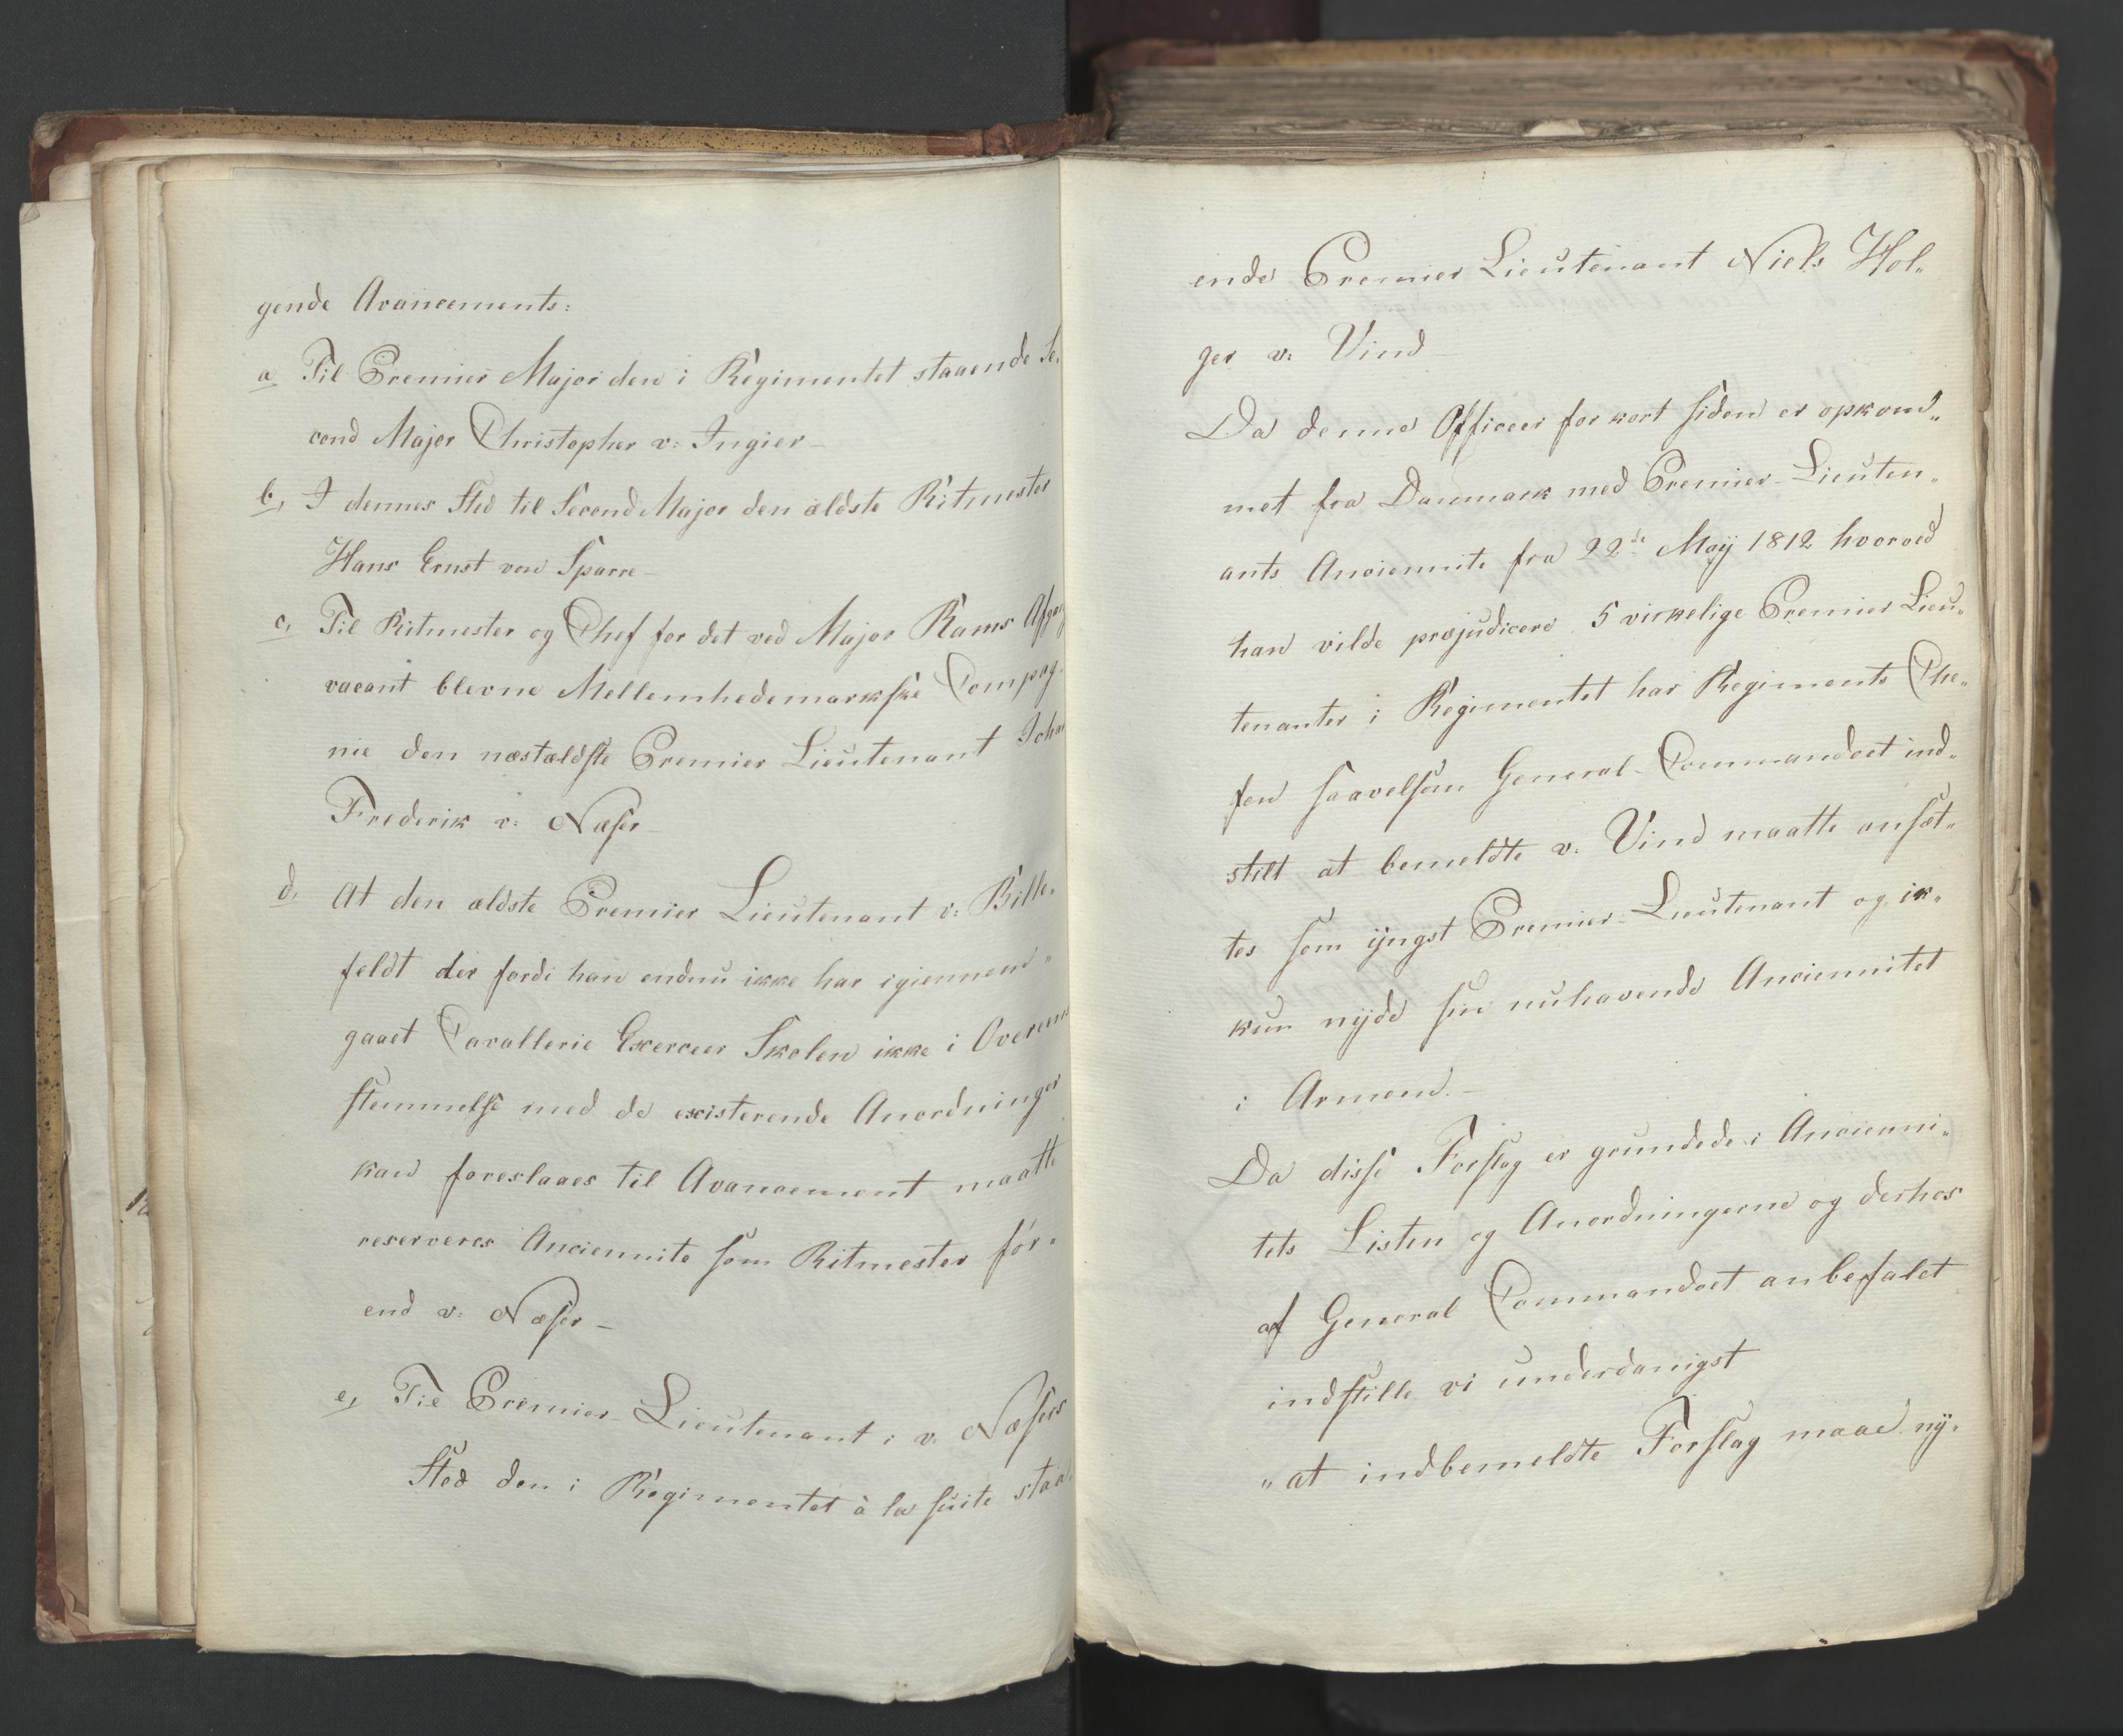 gende Avancements:
a, Til Premier Major den i Regimentet staaende Se„
cond Major Christopher v: Ingier –
b, I dennes Sted til Second Major den ældste Ritmester
Hans Ernst von Sparre –
c, Til Ritmester og Chef for det ved Major Rams Afgang
vacant blevne Mellemhedemarkske Compag„
nie den næstældste Premier Lieutenant Johan
Frederik v: Næser –
d, At den ældste Premier Lieutenant v: Bille„
feldt der fordi han endnu ikke har igiennem„
gaaet Cavallerie Exerceer Skolen ikke i Overens
stemmelse med de existerende Anordninger
kan foreslaaes til Avancement maatte
reserveres Anciennite som Ritmester for„
end v: Næser –
e, Til Premier-Lieutenant i v: Næsers
Sted den i Regimentet à la suite staa„
ende Premier Lieutenant Niels Hol„
ger v: Vind
Da denne Officeer for kort siden er opkom„
met fra Danmark med Premier-Lieuten„
ants Anciennite fra 22de Maÿ 1812 hvorved
han vilde præjudicere 5 virkelige Premier Lieu„
tenanter i Regimentet har Regiments Che„
fen saavelsom General-Commandoet ind„
stilt at bemeldte v. Vind maatte ansæt„
tes som ÿngst Premier-Lieutenant og ik„
kun nÿde sin nuhavende Anciennitet
i Armeen. –
Da disse Forslag er grundede i Ancienni„
tets Listen og Anordningerne og derhos
af General Commandoet anbefalet
indstille vi underdanigst
„ at indbemeldte Forslag maae nÿ„